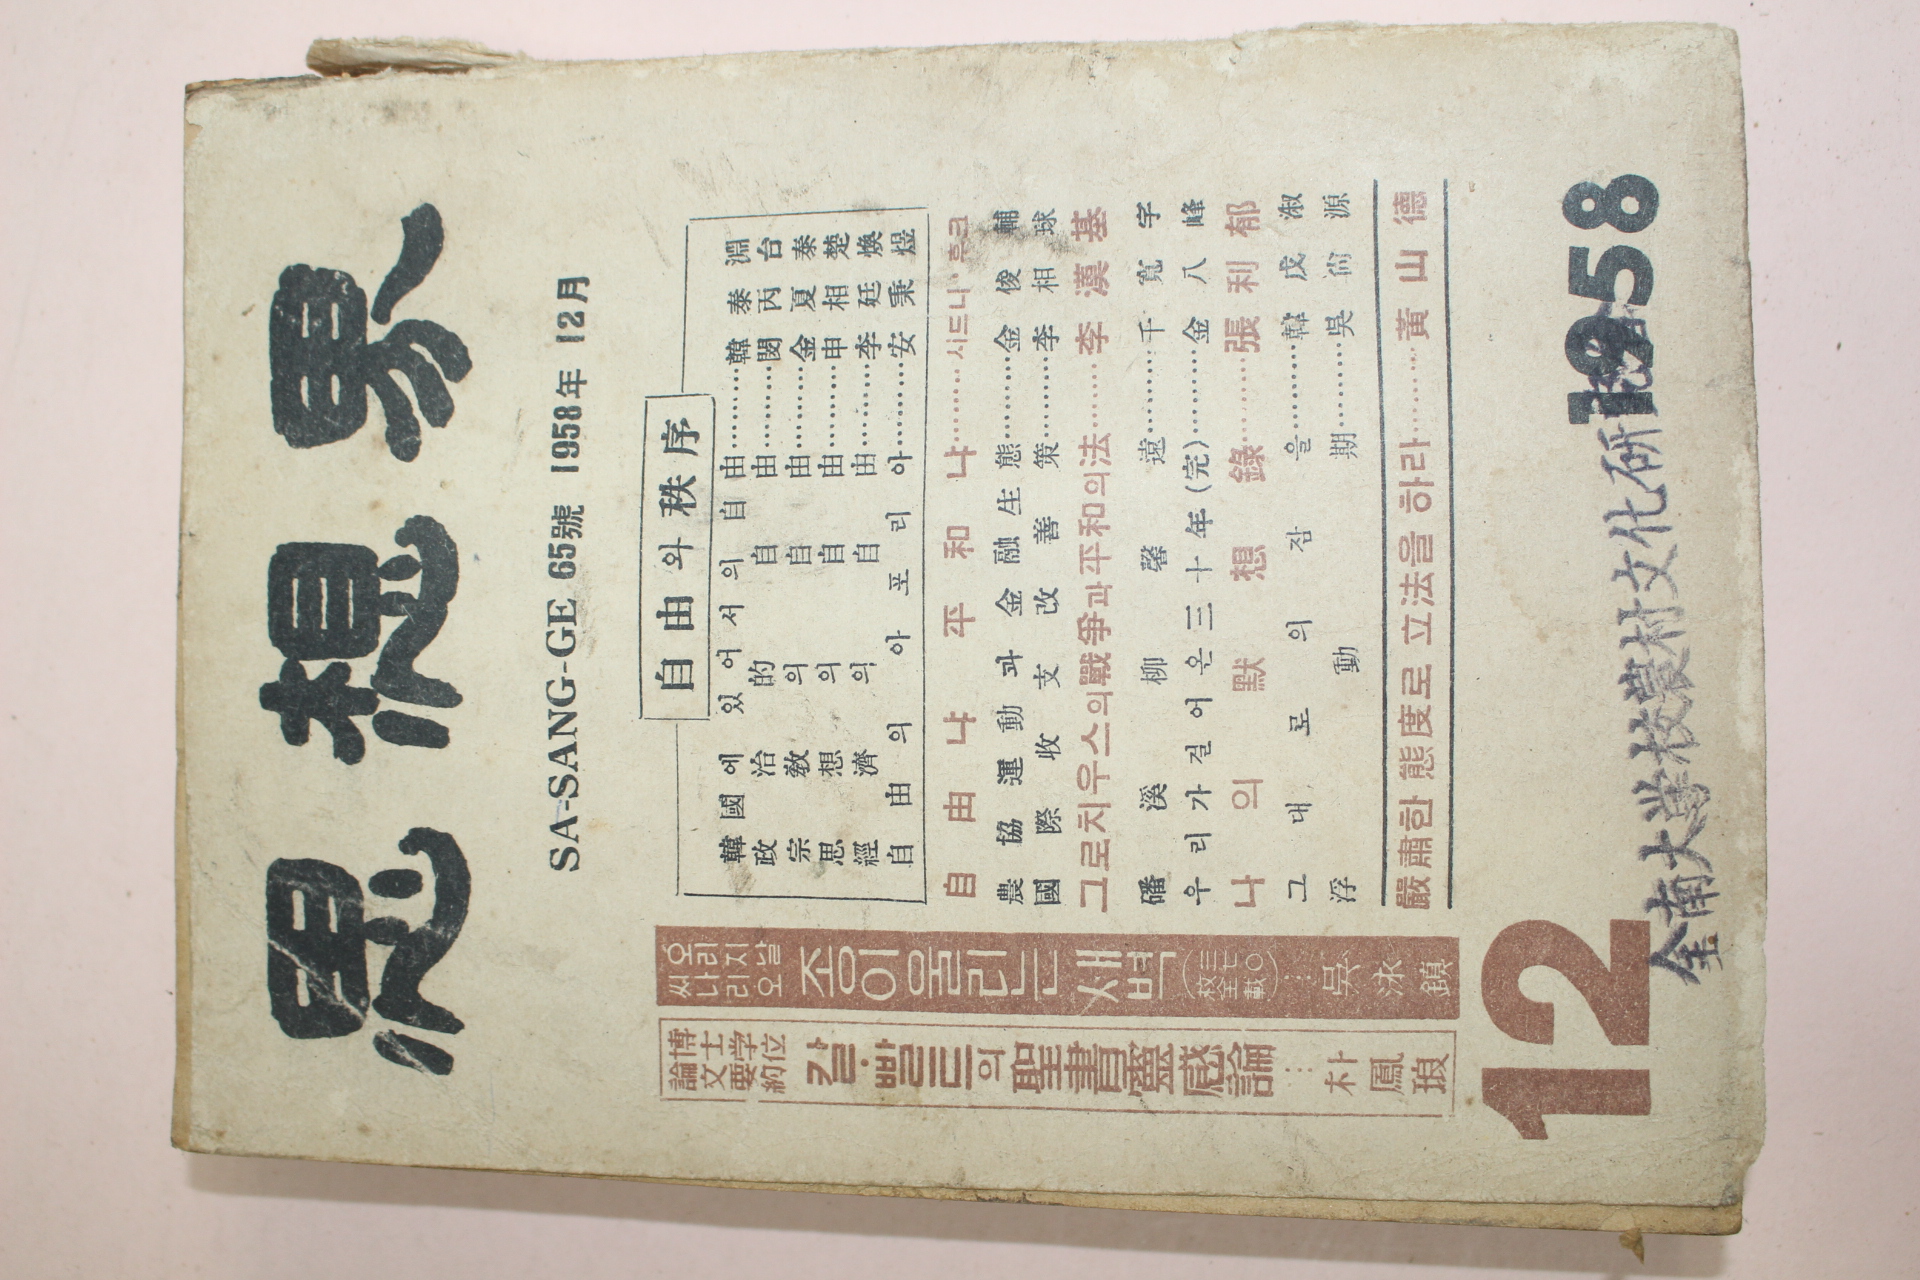 思想界
SA-SANG-GE 65號 1958年 12月
自由와 秩序
韓國에 있어서의 自由………韓泰淵
政治的 自由………閔丙台
宗敎의 自由………金夏泰
思想의 自由………申相楚
經濟의 自由………李廷煥
自由의 아포리아………安秉煜
自由냐 平和냐………시드니·훅크
農協運動과 金融生態………金俊輔
國際收支改善策………李相球
그로치우스의 戰爭과 平和의 法……李漢基
磻溪 柳馨遠………千寬宇
우리가 걸어온 三十年(完)………金八峰
나의 默想錄………張利郁
그대로의 잠을………韓戊淑
浮動期………吳尙源
嚴肅한 態度로 立法을 하라………黃山德
오리지날 씨나리오
종이 울리는 새벽
(三七〇枚全載)…吳泳鎭
博士学位論文要約
칼·빨트의 聖書靈感論……朴鳳琅
12
1958
全南大学校農村文化研